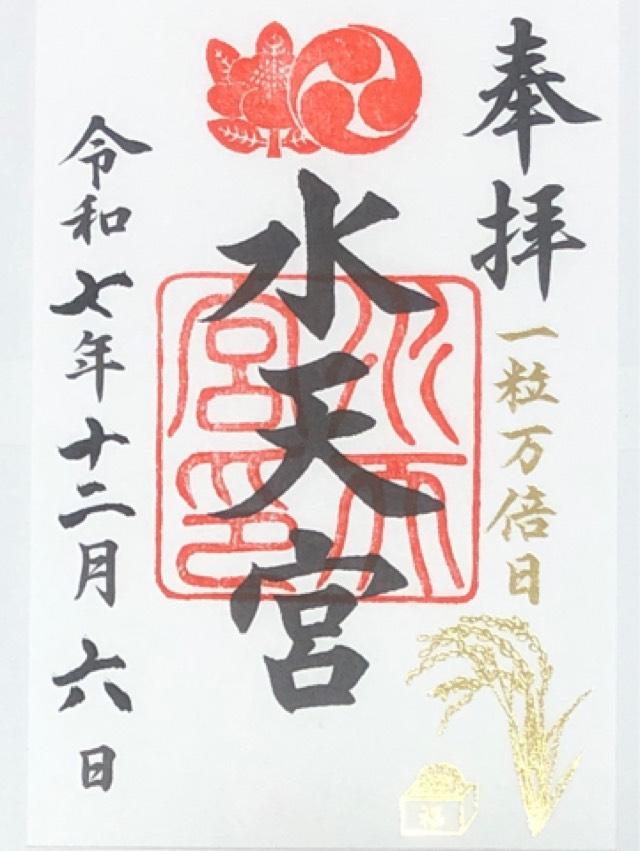 奉拝
一粒万倍日
水天宮
水天宮印
令和七年十二月六日
福